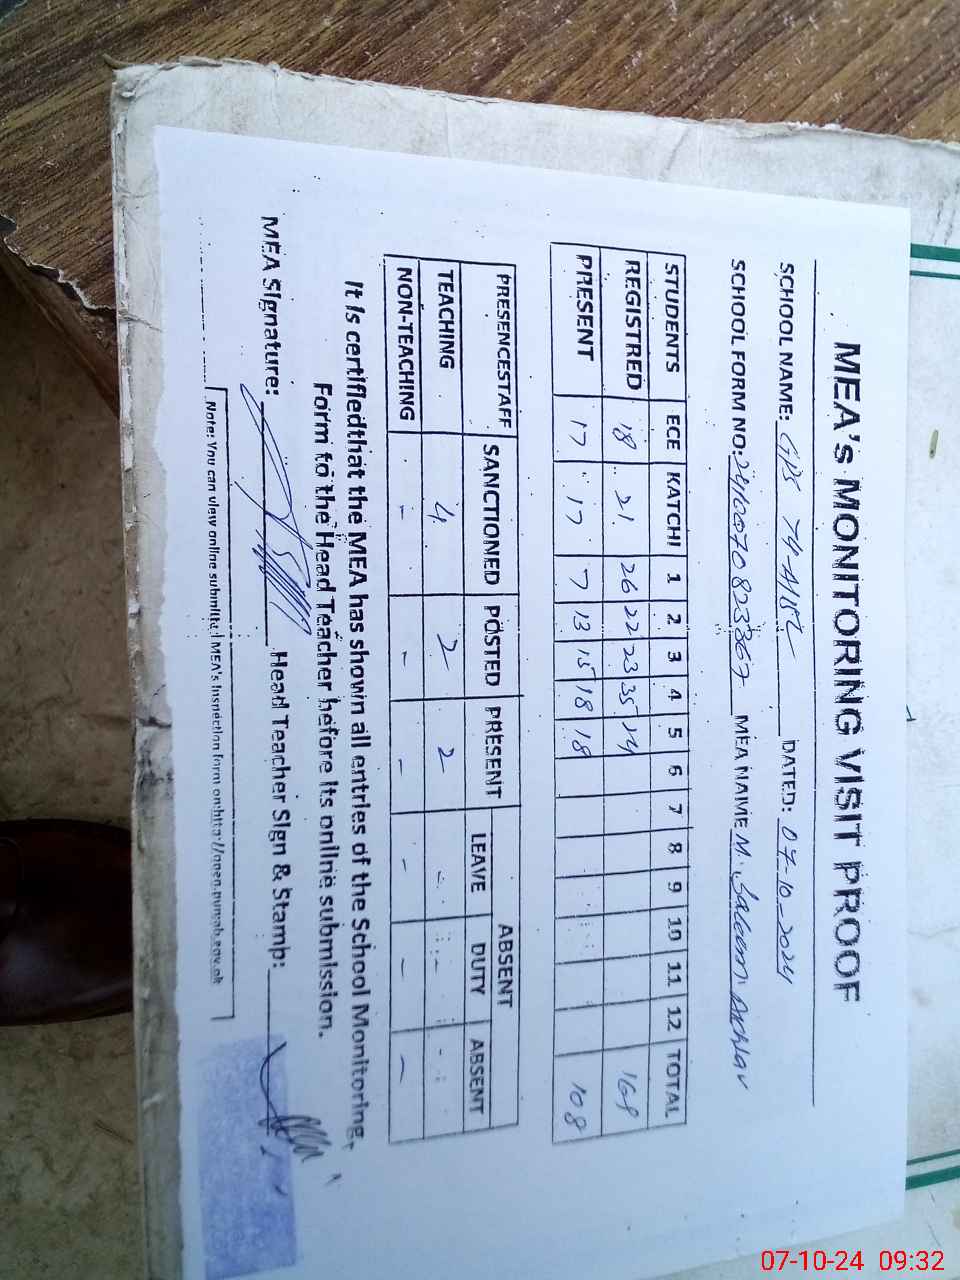 MEA's MONITORING VISIT PROOF
SCHOOL NAME: GPS 74-A/15L DATED: 07-10-2024
SCHOOL FORM NO: MEA NAME M. Saleem Akhtar
STUDENTS ECE KATCHI 1 2 3 4 5 6 7 8 9 10 11 12 TOTAL
REGISTRED 18 21 26 22 23 35 24 169
PRESENT 17 17 7 13 15 18 18 108
PRESENCESTAFF SANCTIONED POSTED PRESENT ABSENT
LEAVE DUTY ABSENT
TEACHING 4 2 2 - - -
NON-TEACHING - - - - - -
It is certifiedthat the MEA has shown all entries of the School Monitoring,
Form to the Head Teacher before its onilne submission.
MEA Signature: Head Teacher Sign & Stamp:
Note: You can view online submitted MEA's Inspection form on:http://open.punjab.gov.pk
07-10-24 09:32